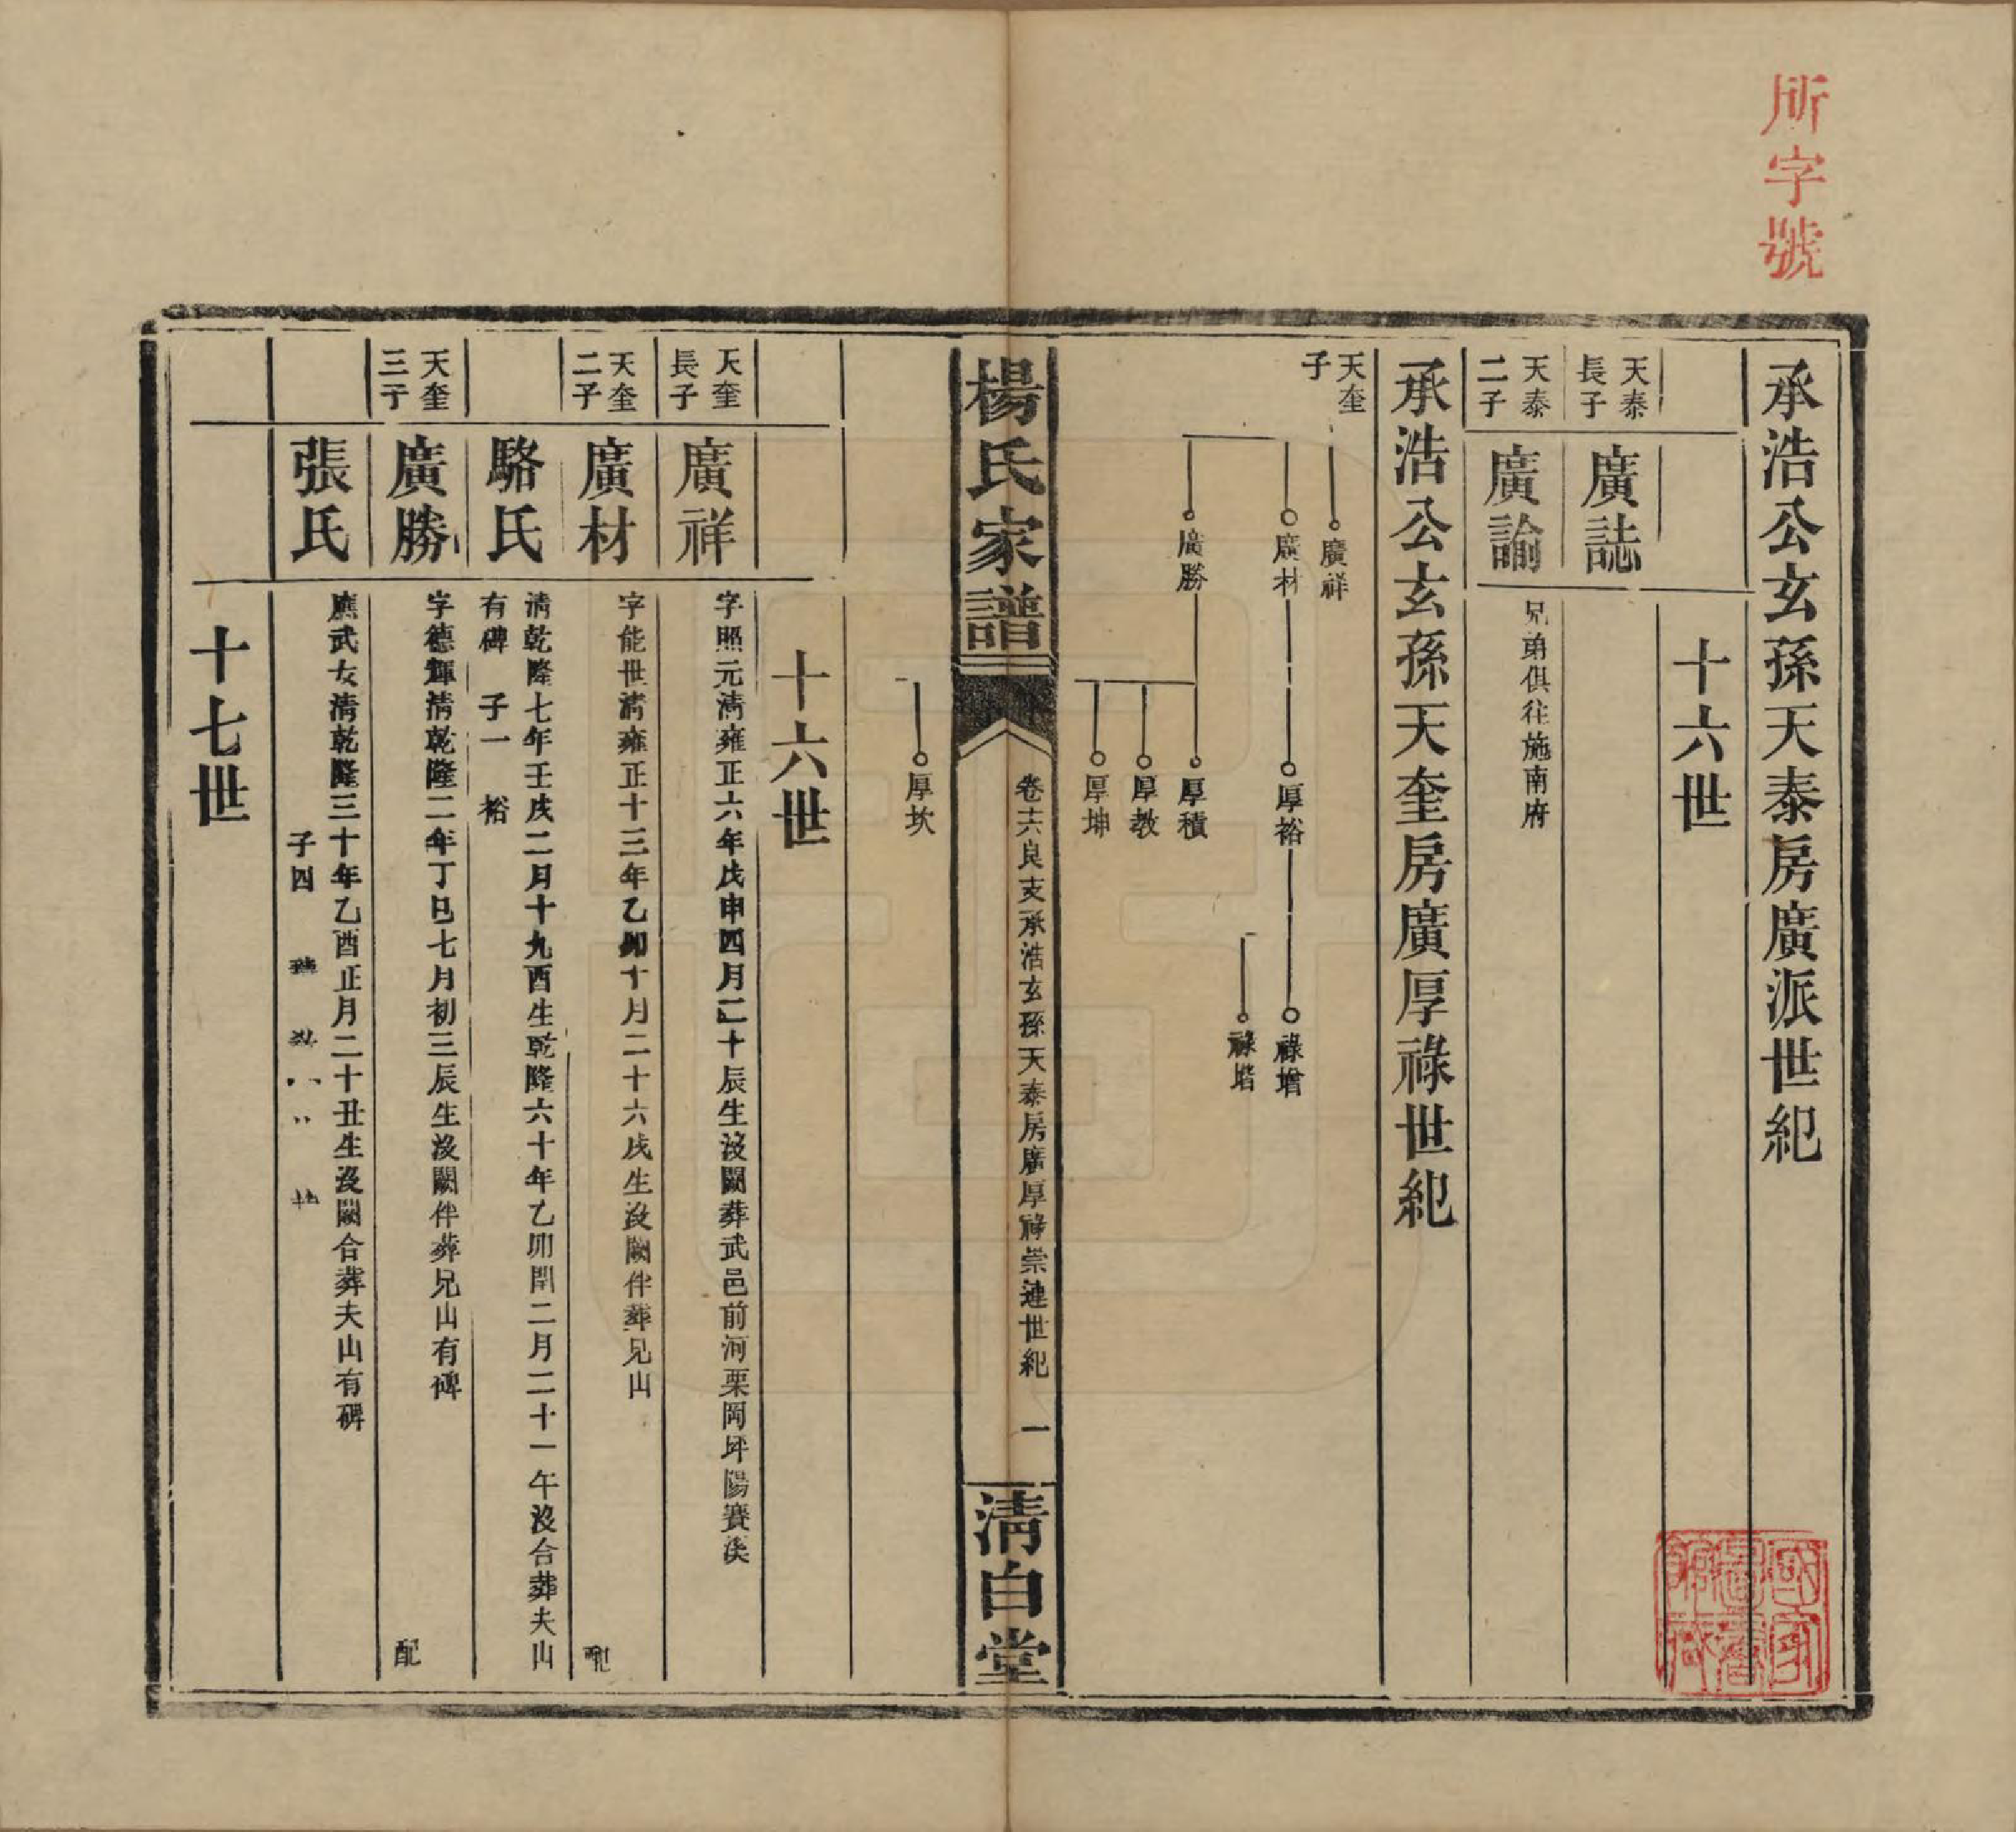 所字號
承浩公玄孫天泰房廣派世紀
十六世
天泰長子
廣誌
天泰二子
廣諭
兄弟俱往施南府
承浩公玄孫天奎房廣厚祿世紀
天奎子
廣祥
廣材
厚裕
祿增
祿堦
廣勝
厚積
厚教
厚坤
楊氏家譜
卷十六良支承浩玄孫天泰房廣厚祿崇連世紀
一
清白堂
厚坎
十六世
天奎長子
廣祥
字照元清雍正六年戊申四月二十辰生沒闕葬武邑前河栗岡坪陽賽溪
天奎二子
廣材
字能世清雍正十三年乙卯十月二十六戌生沒闕伴葬兄山
配
駱氏
清乾隆七年壬戌二月十九酉生乾隆六十年乙卯閏二月二十一午沒合葬夫山
有碑 子一 裕
天奎三子
廣勝
字德輝清乾隆二年丁巳七月初三辰生沒闕伴葬兄山有碑
配
張氏
應武女清乾隆三十年乙酉正月二十丑生沒闕合葬夫山有碑
子四
十七世
國家圖書館藏